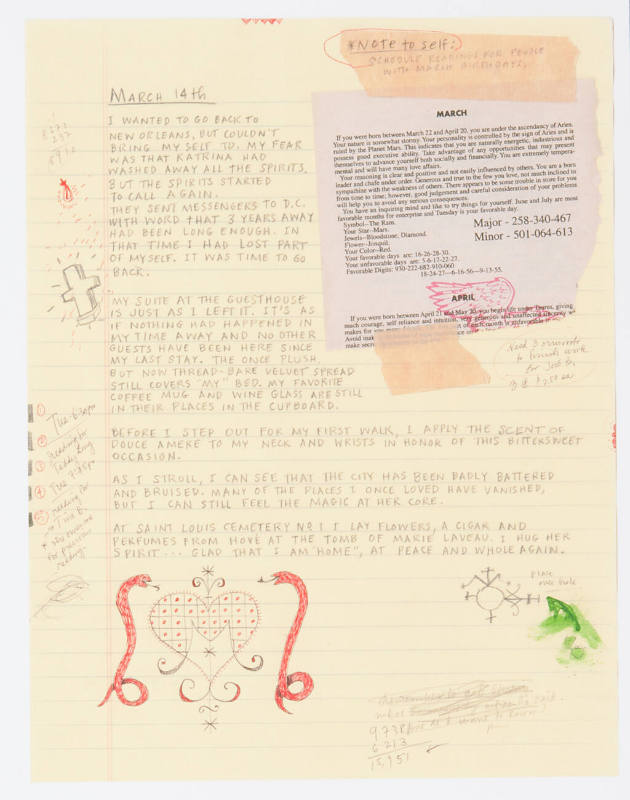 *NOTE to self:
SCHEDULE READINGS FOR PEOPLE
WITH MARCH BIRTHDAYS.
MARCH 14th
I WANTED TO GO BACK TO
NEW ORLEANS, BUT COULDN'T
BRING MY SELF TO. MY FEAR
WAS THAT KATRINA HAD
WASHED AWAY ALL THE SPIRITS.
BUT THE SPIRITS STARTED
TO CALL AGAIN.
THEY SENT MESSENGERS TO D.C.
WITH WORD THAT 3 YEARS AWAY
HAD BEEN LONG ENOUGH. IN
THAT TIME I HAD LOST PART
OF MYSELF. IT WAS TIME TO GO
BACK.
MY SUITE AT THE GUESTHOUSE
IS JUST AS I LEFT IT. IT'S AS
IF NOTHING HAD HAPPENED IN
MY TIME AWAY AND NO OTHER
GUESTS HAVE BEEN HERE SINCE
MY LAST STAY. THE ONCE PLUSH,
BUT NOW THREAD-BARE VELVET SPREAD
STILL COVERS "MY" BED. MY FAVORITE
COFFEE MUG AND WINE GLASS ARE STILL
IN THEIR PLACES IN THE CUPBOARD.
BEFORE I STEP OUT FOR MY FIRST WALK, I APPLY THE SCENT OF
DOUCE AMERE TO MY NECK AND WRISTS IN HONOR OF THIS BITTERSWEET
OCCASION.
AS I STROLL, I CAN SEE THAT THE CITY HAS BEEN BADLY BATTERED
AND BRUISED. MANY OF THE PLACES I ONCE LOVED HAVE VANISHED,
BUT I CAN STILL FEEL THE MAGIC AT HER CORE.
AT SAINT LOUIS CEMETERY Nº 1 I LAY FLOWERS, A CIGAR AND
PERFUMES FROM HOVÉ AT THE TOMB OF MARIE LAVEAU. I HUG HER
SPIRIT... GLAD THAT I AM "HOME", AT PEACE AND WHOLE AGAIN.
MARCH
If you were born between March 22 and April 20, you are under the ascendancy of Aries.
Your nature is somewhat stormy. Your personality is controlled by the sign of Aries and is
ruled by the Planet Mars. This indicates that you are naturally energetic, industrious and
possess good executive ability. Take advantage of any opportunities that may present
themselves to advance yourself both socially and financially. You are extremely tempera-
mental and will have many love affairs.
Your reasoning is clear and positive and not easily influenced by others. You are a born
leader and chafe under order. Generous and true to the few you love, not much inclined to
sympathize with the weakness of others. There appears to be some trouble in store for you
from time to time; however, good judgement and careful consideration of your problems
will help you to avoid any serious consequences.
You have an inquiring mind and like to try things for yourself. June and July are most
favorable months for enterprise and Tuesday is your favorable day.
Symbol—The Ram.
Your Star—Mars.
Jewels—Bloodstone, Diamond.
Flower—Jonquil.
Your Color—Red.
Your favorable days are: 16-26-28-30.
Your unfavorable days are: 5-6-17-22-27.
Favorable Digits: 930-222-682-910-060
18-24-27—6-16-56—9-13-55.
Major - 258-340-467
Minor - 501-064-613
APRIL
If you were born between April 21 and May 20, you
giving
much courage, self reliance and intuition,
makes for you many
Avoid
make
9738
6213
15,951